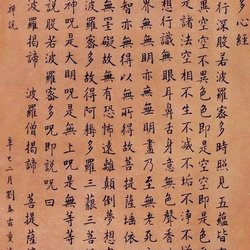 多心經
行深般若波羅密多時照見五蘊皆
異空空不異色色即是空空即是
是諸法空相不生不滅不垢不淨不
想行識無眼耳鼻舌身意無色聲香
界無無明亦無無明盡乃至無老死
智亦無得以無所得故菩提薩埵依
罣礙故無有恐怖遠離顛倒夢想
羅密多故得阿耨多羅三藐三菩
神呪是大明呪是無上呪是無等
說般若波羅密多呪即說呪曰
波羅揭諦 波羅僧揭諦 菩提薩
辛巳二月劉春霖